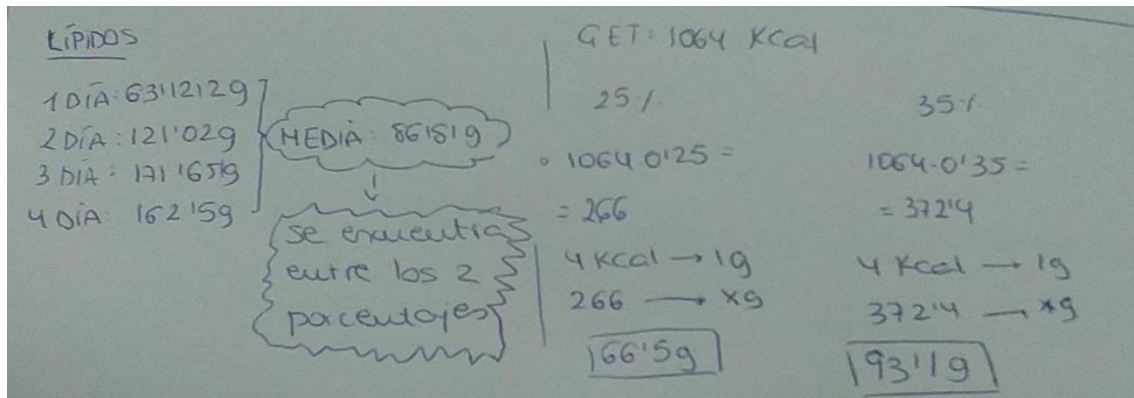 LÍPIDOS
1 DÍA: 63'1212g
2 DÍA: 121'02g
3 DÍA: 171'65g
4 DÍA: 162'5g
MEDIA: 86'81g
↓
se encuentra
entre los 2
porcentajes
GET: 1064 Kcal
25%
1064·0'25 =
= 266
4 Kcal → 1g
266 → xg
66'5g
35%
1064·0'35 =
= 372'4
4 Kcal → 1g
372'4 → xg
93'1g